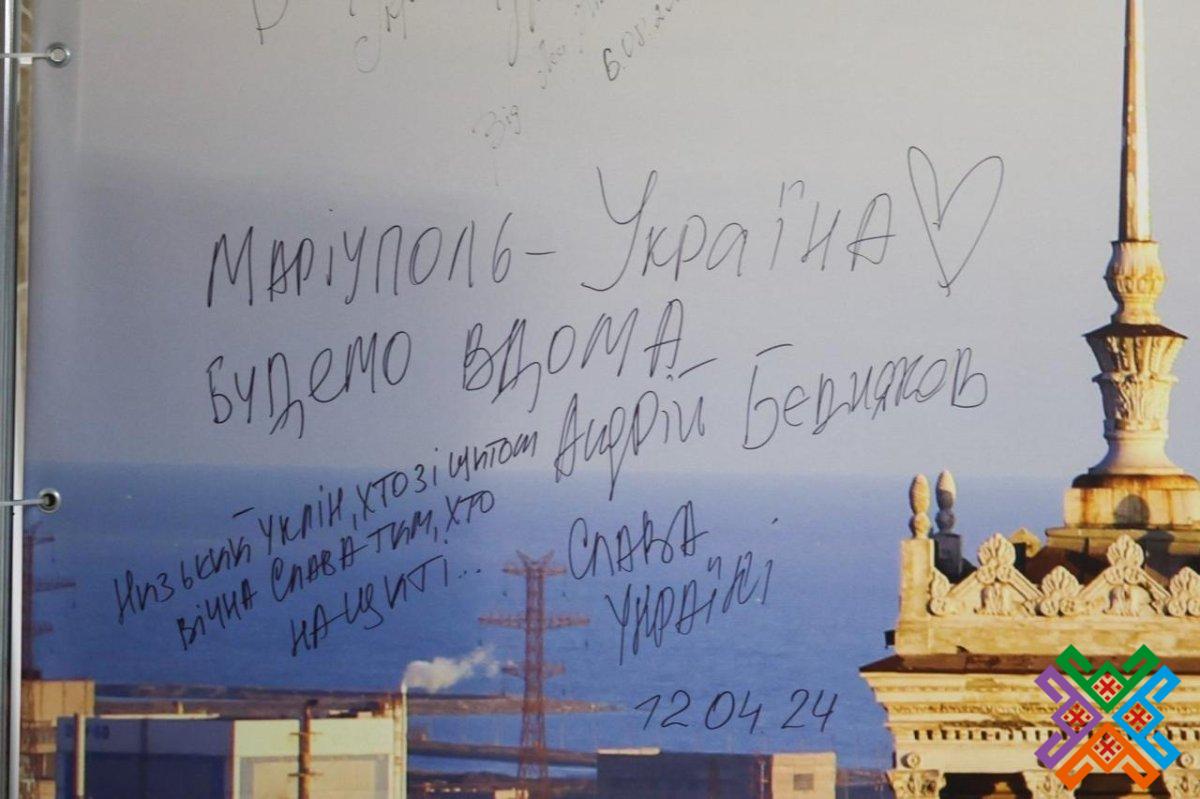 Від
6.05.2
Маріуполь - Україна
Будемо вдома
Андрій Бєдняков
Низький уклін, хто зі щитом
вічна слава тим, хто
на щиті...
Слава
Україні
12.04.24